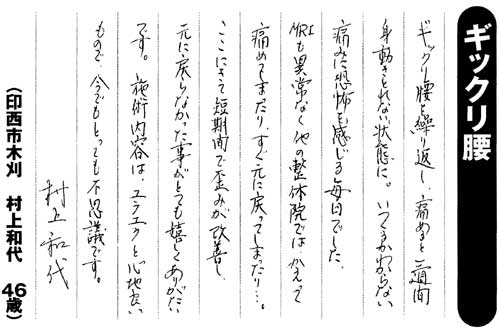 ギックリ腰
ギックリ腰を繰り返し、痛めると三週間
身動きとれない状態に。いつくるかわからない
痛みに恐怖を感じる毎日でした。
MRIも異常なく他の整体院では、かえって
痛めてしまったり、すぐ元に戻ってしまったり…。
ここにきて短期間で歪みが改善し、
元に戻らなかった事がとても嬉しくありがたい
です。施術内容は、ユラユラと心地よい
もので、今でもとっても不思議です。
村上和代
（印西市木刈　村上和代　46歳）